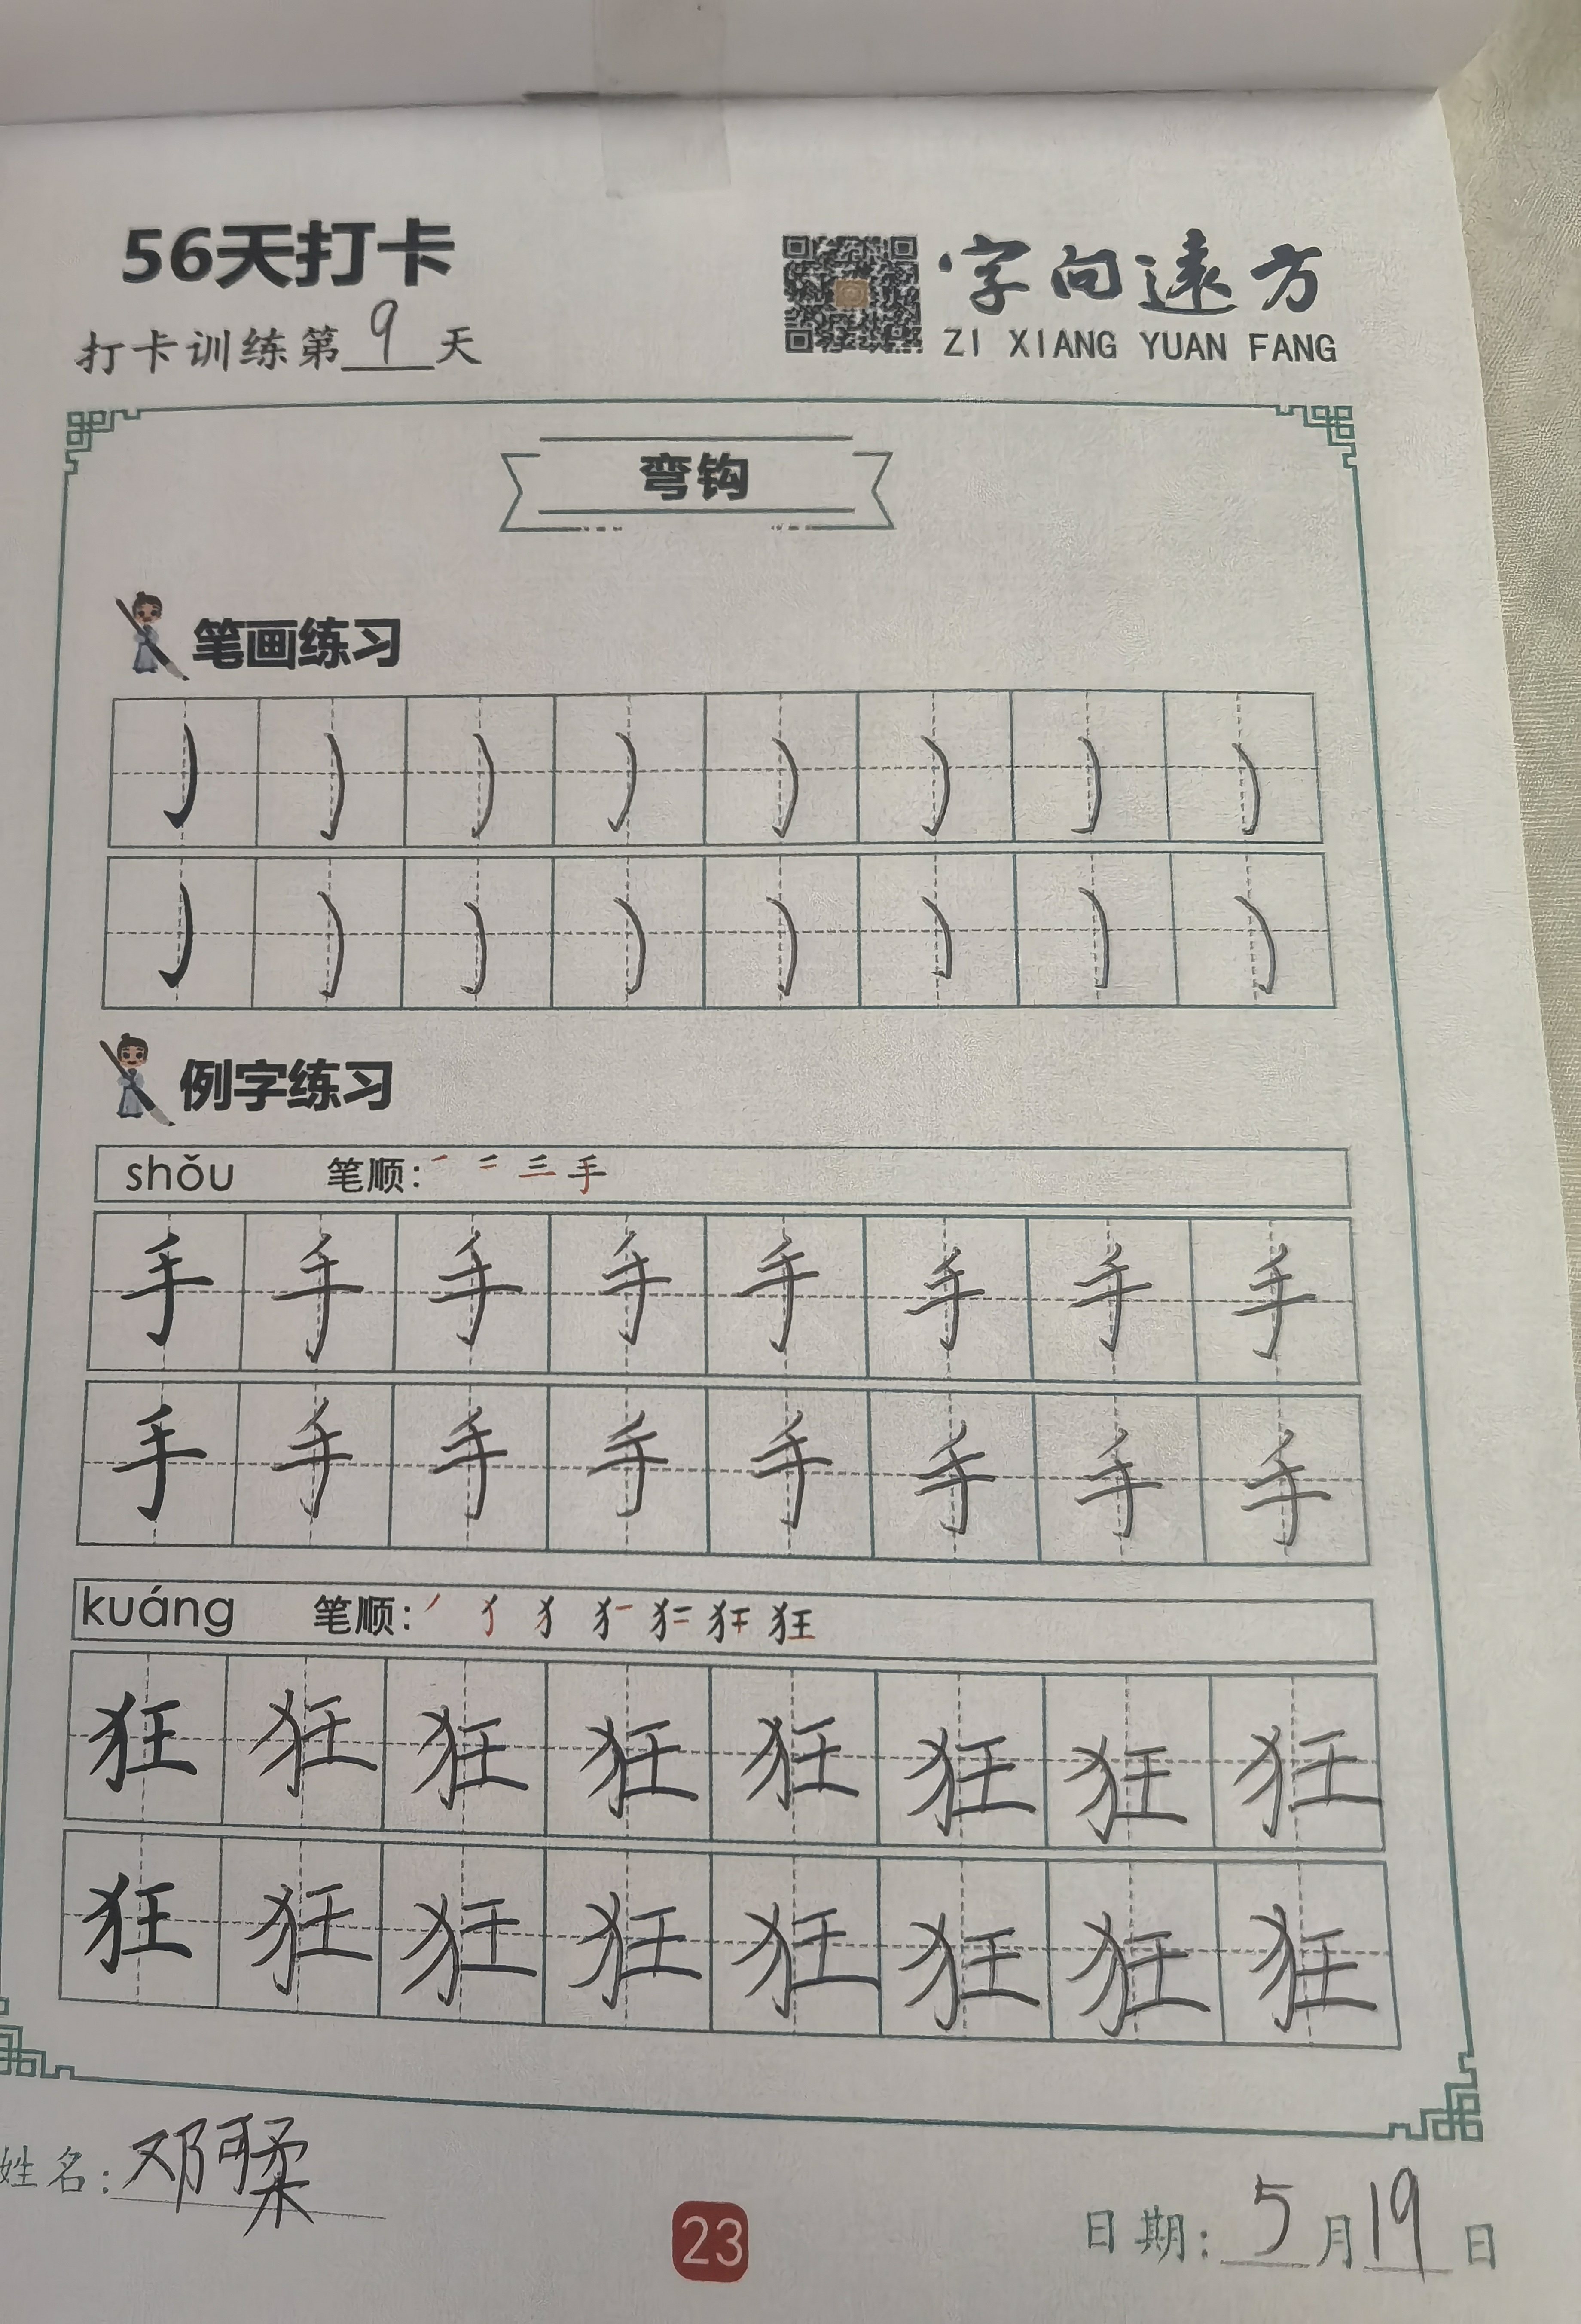 56天打卡
打卡训练第9天
字向远方
ZI XIANG YUAN FANG
弯钩
笔画练习
例字练习
shǒu 笔顺:
手 手 手 手 手 手 手 手
手 手 手 手 手 手 手 手
kuáng 笔顺:
狂 狂 狂 狂 狂 狂 狂 狂
狂 狂 狂 狂 狂 狂 狂 狂
姓名:邓可柔
23
日期:5月19日